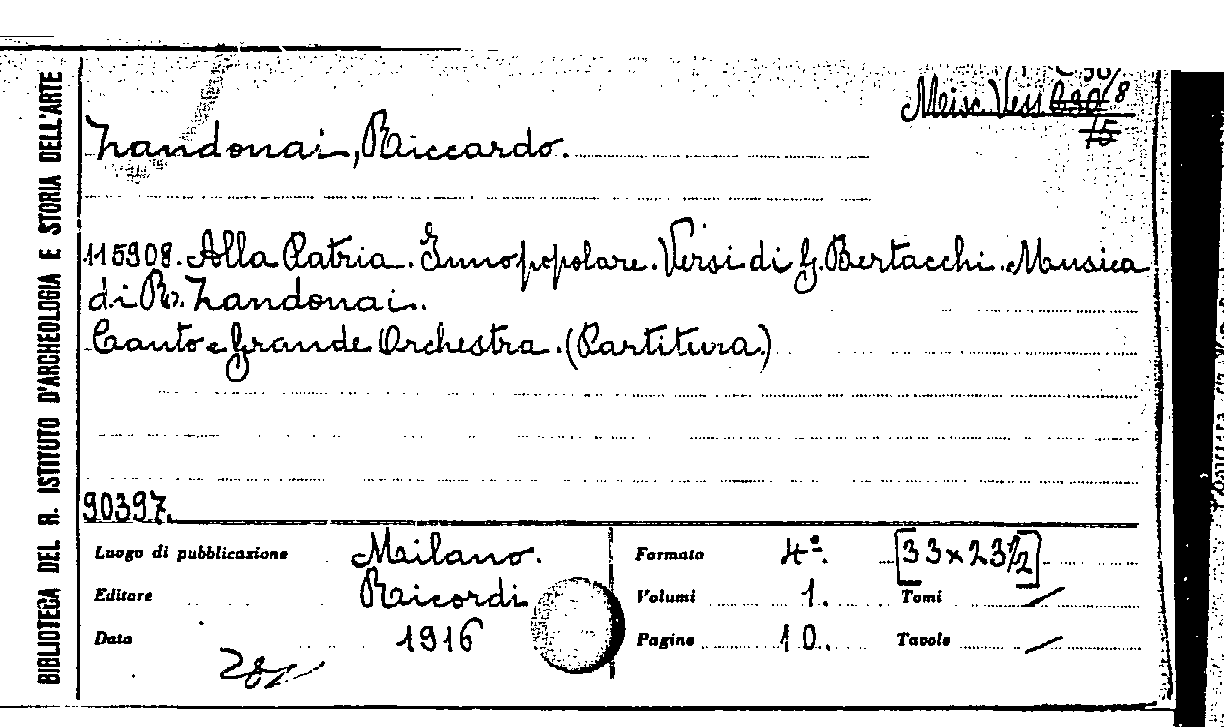 BIBLIOTECA DEL R. ISTITUTO D'ARCHEOLOGIA E STORIA DELL'ARTE
Misc. Vess 8
15
Zandonai, Riccardo.
115908. Alla Patria. Inno popolare. Versi di G. Bertacchi. Musica
di R. Zandonai.
Canto e Grande Orchestra. (Partitura)
90397.
Luogo di pubblicazione Milano. Formato 4º. [33x23½]
Editore Ricordi Volumi 1. Tomi /
Data 1916 Pagine 10. Tavole /